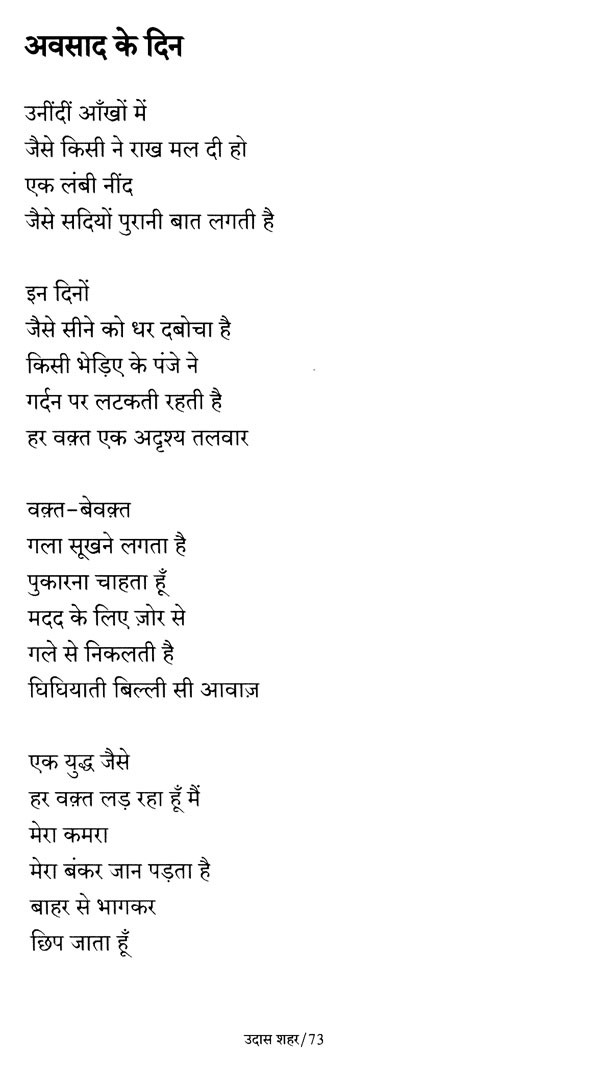 अवसाद के दिन
उनींदीं आँखों में
जैसे किसी ने राख मल दी हो
एक लंबी नींद
जैसे सदियों पुरानी बात लगती है
इन दिनों
जैसे सीने को धर दबोचा है
किसी भेड़िए के पंजे ने
गर्दन पर लटकती रहती है
हर वक़्त एक अदृश्य तलवार
वक़्त-बेवक़्त
गला सूखने लगता है
पुकारना चाहता हूँ
मदद के लिए ज़ोर से
गले से निकलती है
घिघियाती बिल्ली सी आवाज़
एक युद्ध जैसे
हर वक़्त लड़ रहा हूँ मैं
मेरा कमरा
मेरा बंकर जान पड़ता है
बाहर से भागकर
छिप जाता हूँ
उदास शहर/73